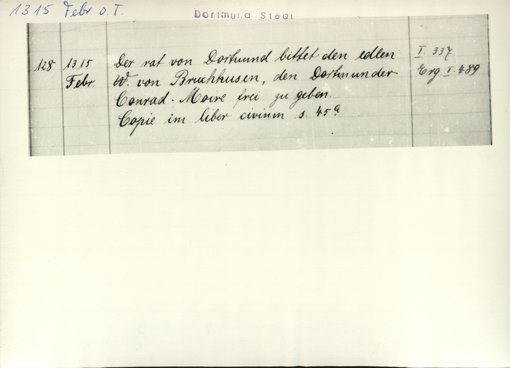 1315 Febr. o.T.
Dortmund Stadt
128 1315 Der rat von Dortmund bittet den edlen I. 337
Febr. W. von Bruchhusen, den Dortmunder Erg I. 489
Conrad. Moire frei zu geben.
Copie im liber civium s. 45a